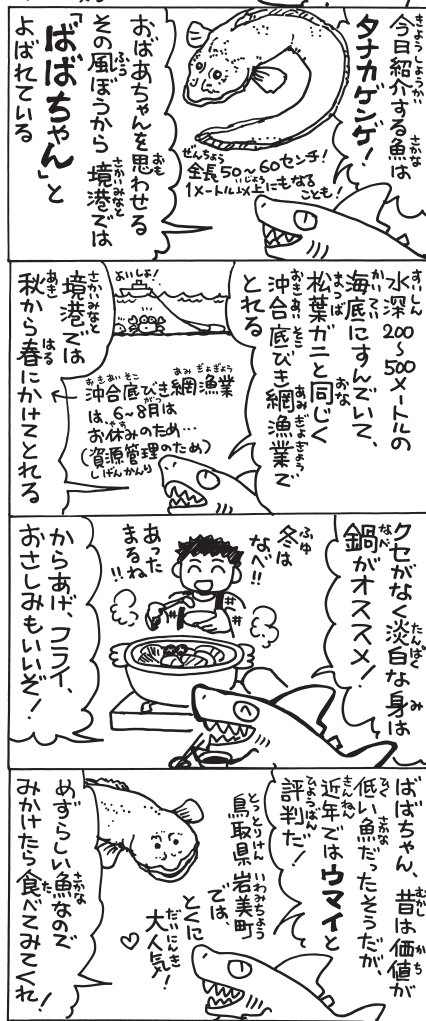 今日紹介する魚は
タナカゲンゲ！
全長50～60センチ！
1メートル以上にもなる
ことも！
おばあちゃんを思わせる
その風ぼうから境港では
「ばばちゃん」と
よばれている
水深200～500メートルの
海底にすんでいて、
松葉ガニと同じく
沖合底びき網漁業で
とれる
よいしょ！
沖合底びき網漁業
は、6～8月は
お休みのため…
（資源管理のため）
境港では
秋から春にかけてとれる
クセがなく淡白な身は
鍋がオススメ！
冬は
なべ!!
あった
まるね
!!
からあげ、フライ、
おさしみもいいぞ！
ばばちゃん、昔は価値が
低い魚だったそうだが、
近年ではウマイと
評判だ！
鳥取県岩美町
では、
とくに
大人気！
♡
めずらしい魚なので
みかけたら食べてみてくれ！